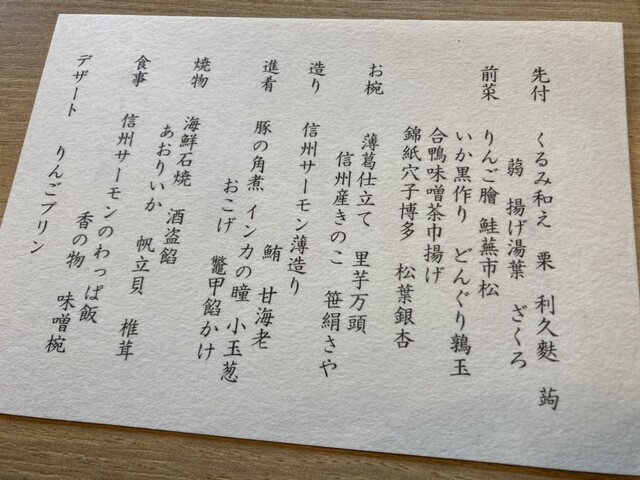 先付 くるみ和え 栗 利久麩 蒟
蒻 揚げ湯葉 ざくろ
前菜 りんご膾 鮭蕪市松
いか黒作り どんぐり鶉玉
合鴨味噌茶巾揚げ
錦紙穴子博多 松葉銀杏
お椀 薄葛仕立て 里芋万頭
信州産きのこ 笹絹さや
造り 信州サーモン薄造り
鮪 甘海老
進肴 豚の角煮 インカの瞳 小玉葱
おこげ 鼈甲餡かけ
焼物 海鮮石焼 酒盗餡
あおりいか 帆立貝 椎茸
食事 信州サーモンのわっぱ飯
香の物 味噌椀
デザート りんごプリン